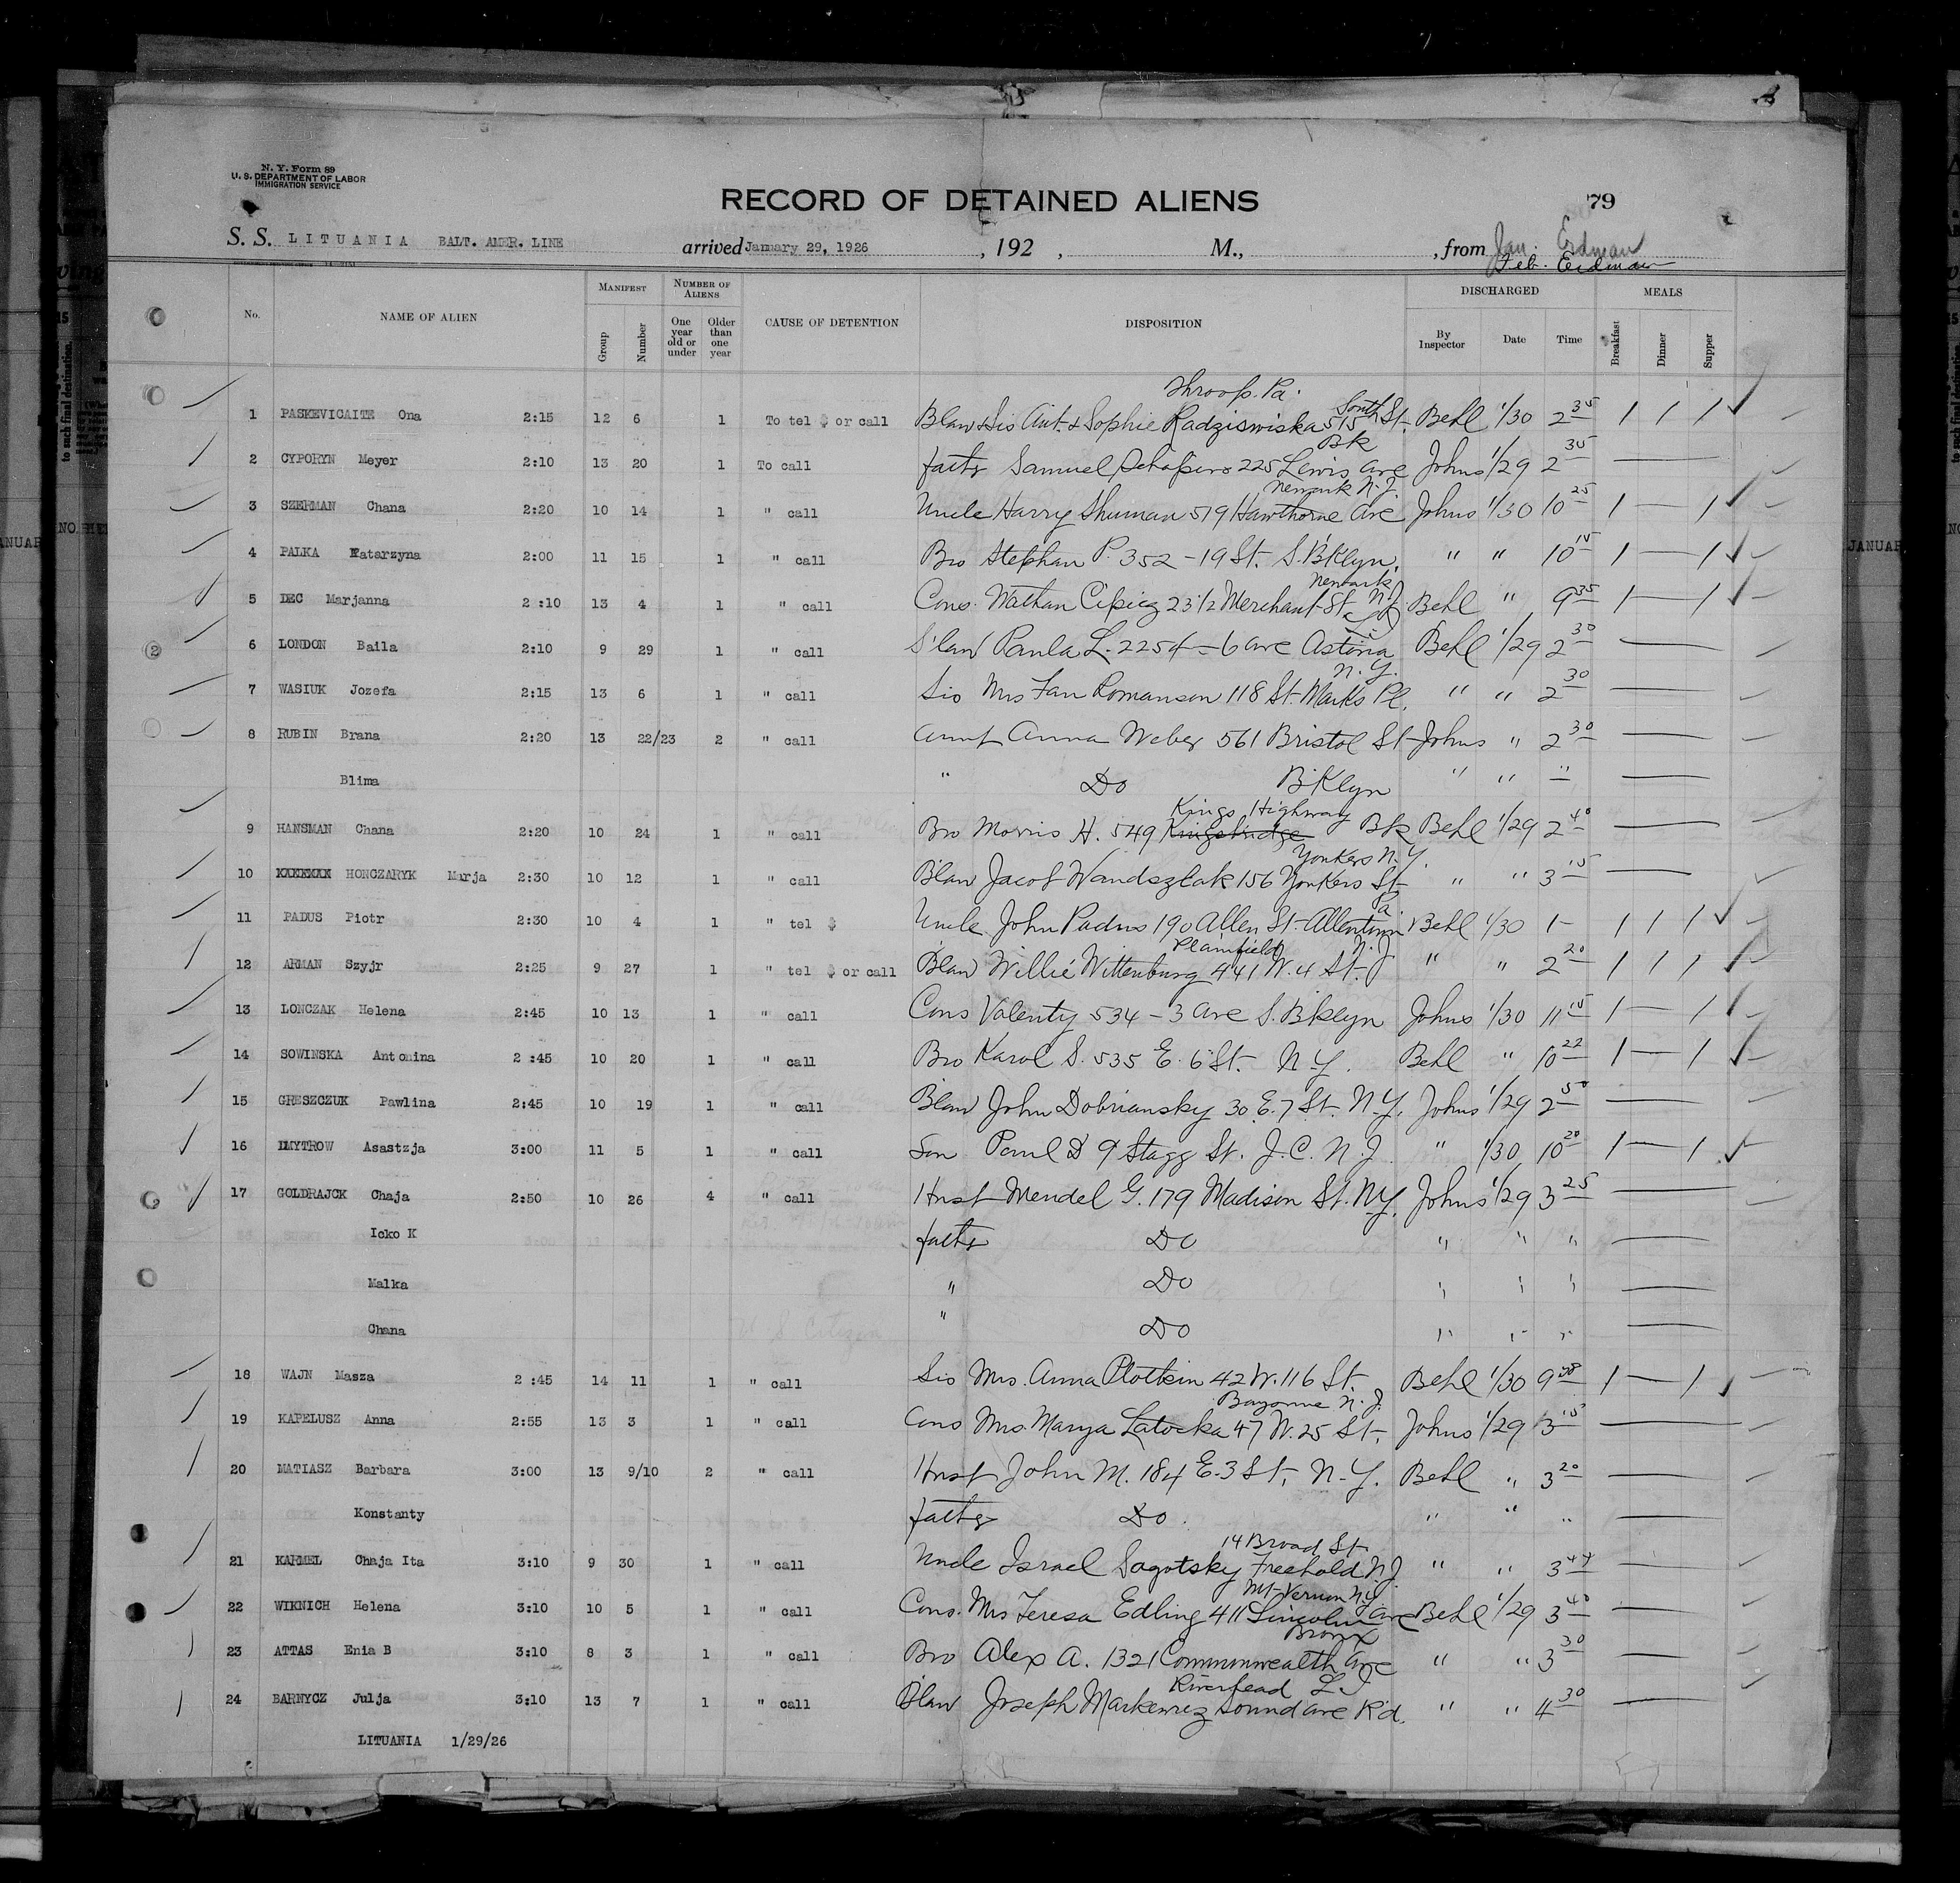 N. Y. Form 89
U. S. DEPARTMENT OF LABOR
IMMIGRATION SERVICE
RECORD OF DETAINED ALIENS
79
S. S. LITUANIA BALT. AMER. LINE arrived January 29, 1926, 192 , M., , from Jan. Erdman
Feb. Erdman
No. NAME OF ALIEN MANIFEST Group Number NUMBER OF ALIENS One year old or under Older than one year CAUSE OF DETENTION DISPOSITION DISCHARGED By Inspector Date Time MEALS Breakfast Dinner Supper
Throop. Pa.
1 PASKEVICAITE Ona 2:15 12 6 1 To tel $ or call Blaw & Sis Ant. & Sophie Radziswiska 515 South St. Behl 1/30 2 35 1 1 1
Bk
2 CYPORYN Meyer 2:10 13 20 1 To call fathr Samuel Schapiro 225 Lewis Ave Johns 1/29 2 35 —
Newark N.J.
3 SZERMAN Chana 2:20 10 14 1 " call Uncle Harry Shuman 519 Hawthorne Ave Johns 1/30 10 25 1 — 1
4 PALKA Katarzyna 2:00 11 15 1 " call Bro Stephan P. 352 - 19 St. S. B'Klyn. " " 10 15 1 — 1
Newark N.J.
5 DEC Marjanna 2:10 13 4 1 " call Cons. Wathan 23 1/2 Merchant St Behl " 9 35 1 — 1
L.I.
6 LONDON Baila 2:10 9 29 1 " call S'law Paula L. 2254 - 6 ave Astoria Behl 1/29 2 30 —
N.Y.
7 WASIUK Jozefa 2:15 13 6 1 " call Sis Mrs Fan Romanson 118 St. Marks Pl. " " 2 30 —
8 RUBIN Brana 2:20 13 22/23 2 " call Aunt Anna Weber 561 Bristol St Johns " 2 30 —
Blima " Do B'Klyn " " " —
Kings Highway
9 HANSMAN Chana 2:20 10 24 1 " call Bro Morris H. 549 Kingsbridge Bk Behl 1/29 2 40 —
Yonkers N.Y.
10 HONCZARYK Marja 2:30 10 12 1 " call Blaw Jacob Wandszlak 156 Yonkers St " " 3 15 —
Pa.
11 PADUS Piotr 2:30 10 4 1 " tel $ Uncle John Padus 190 Allen St. Allentown Behl 1/30 1 — 1 1 1
Plainfield N.J.
12 ARMAN Szyjr 2:25 9 27 1 " tel $ or call Blaw Willie Wittenburg 441 W. 4 St. " " 2 20 1 1 1
13 LONCZAK Helena 2:45 10 13 1 " call Cons Valenty 534 - 3 Ave S. B'klyn Johns 1/30 11 15 1 — 1
14 SOWINSKA Antonina 2:45 10 20 1 " call Bro Karol S. 535 E. 6 St. N.Y. Behl " 10 22 1 — 1
15 GRESZCZUK Pawlina 2:45 10 19 1 " call Blaw John Dobriansky 30 E. 7 St. N.Y. Johns 1/29 2 50 —
16 DMYTROW Asastzja 3:00 11 5 1 " call Son Paul D 9 Stagg St. J.C. N.J. " 1/30 10 20 1 — 1
17 GOLDRAJCK Chaja 2:50 10 26 4 " call Husb Mendel G. 179 Madison St. N.Y. Johns 1/29 3 25 —
Icko K fathr Do " " " —
Malka " Do " " " —
Chana " Do " " " —
18 WAJN Masza 2:45 14 11 1 " call Sis Mrs. Anna Plotkin 42 W. 116 St. Behl 1/30 9 1 — 1
Bayonne N.J.
19 KAPELUSZ Anna 2:55 13 3 1 " call Cons Mrs. Marya Latocka 47 W. 25 St. Johns 1/29 3 15 —
20 MATIASZ Barbara 3:00 13 9/10 2 " call Husb John M. 184 E. 3 St, N.Y. Behl " 3 20 —
Konstanty fathr Do. " " " —
14 Broad St.
21 KARMEL Chaja Ita 3:10 9 30 1 " call Uncle Israel Sagotsky Freehold N.J. " " 3 44 —
Mt. Vernon N.Y.
22 WIKNICH Helena 3:10 10 5 1 " call Cons. Mrs Teresa Edling 411 Lincoln Ave Behl 1/29 3 40 —
Bronx
23 ATTAS Enia B 3:10 8 3 1 " call Bro Alex A. 1321 Commonwealth Ave " " 3 30 —
Riverhead L.I.
24 BARNYCZ Julja 3:10 13 7 1 " call Blaw Joseph Markewicz Sound Ave R'd. " " 4 30 —
LITUANIA 1/29/26